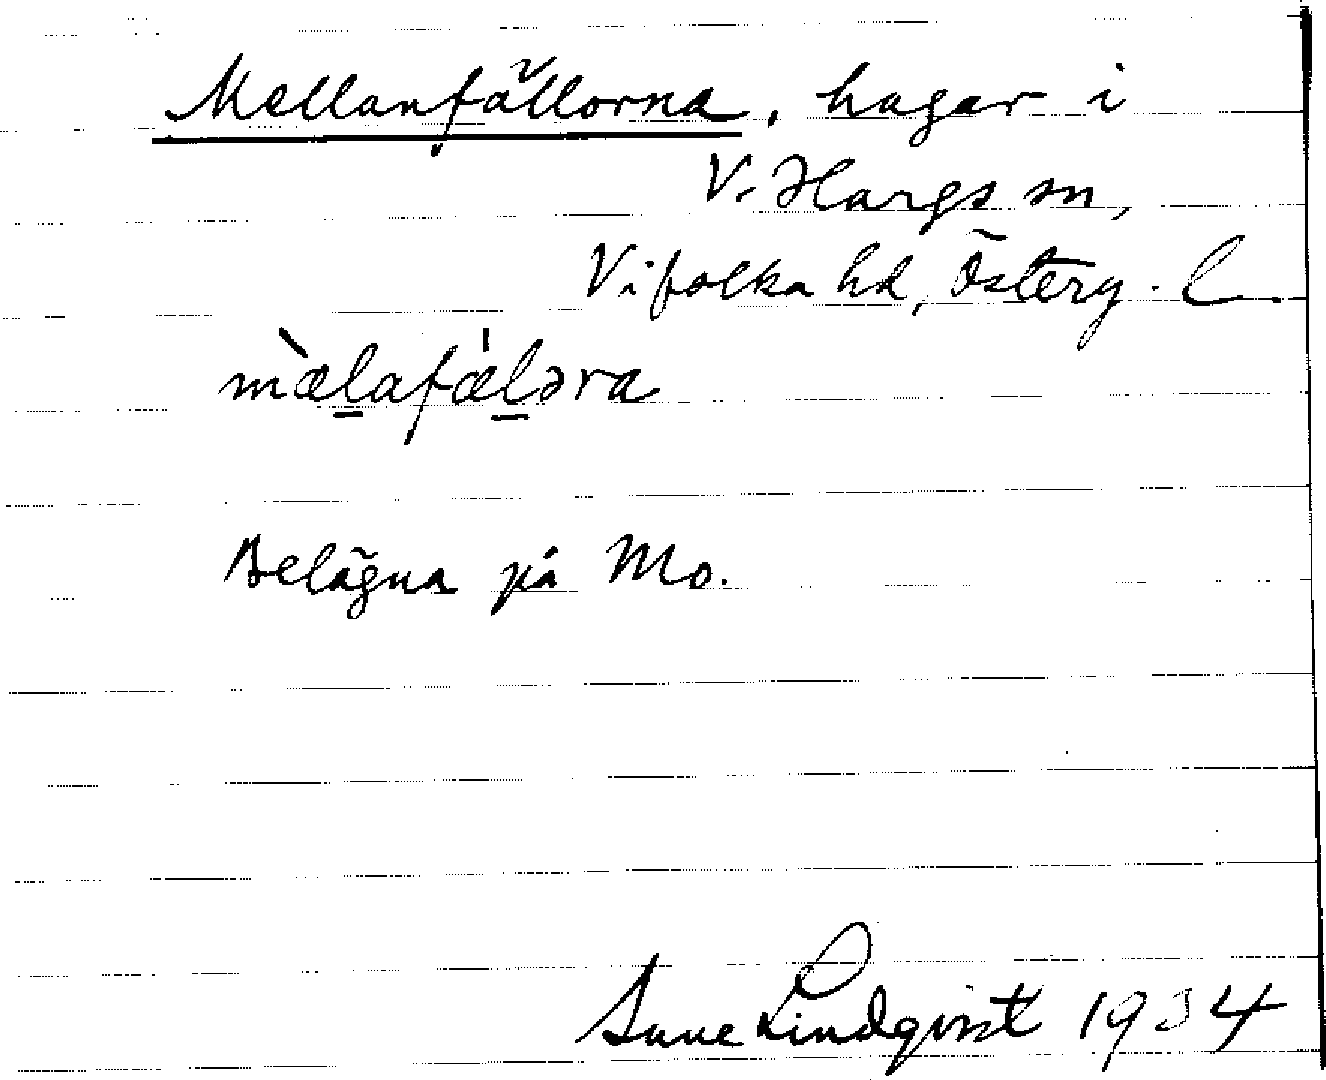 Mellanfällorna, hagar i
V. Hargs sn,
Vifolka hd, Österg. l.
mæ̀l̠afæ̍l̠əra
Belägna på Mo.
Sune Lindqvist 1934